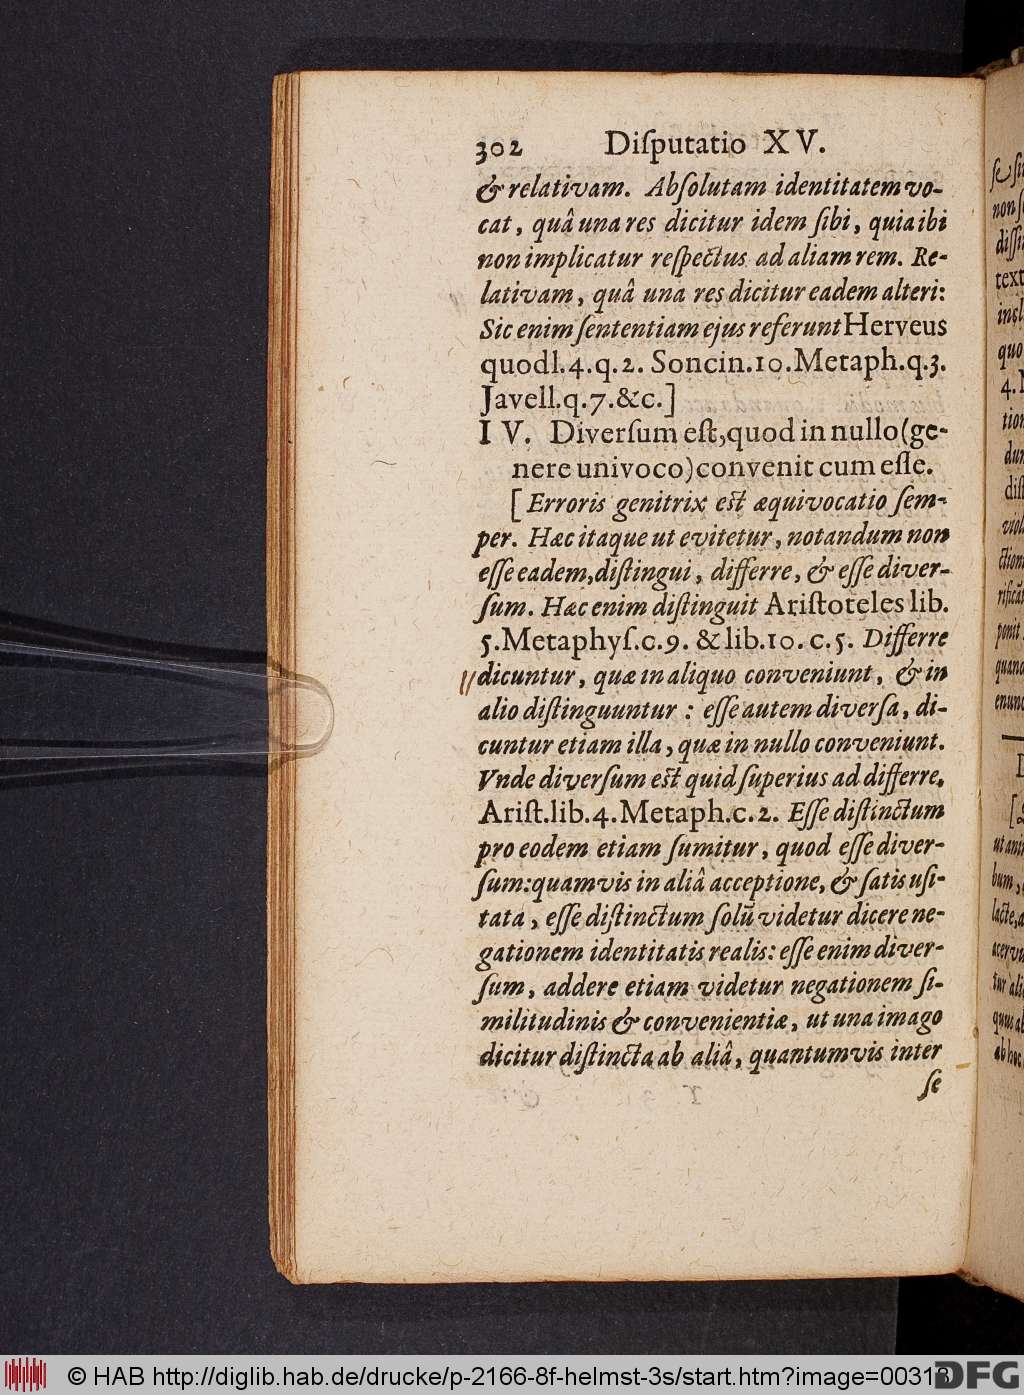 302 Diſputatio XV.
& relativam. Abſolutam identitatem vo-
cat, quâ una res dicitur idem ſibi, quia ibi
non implicatur reſpectus ad aliam rem. Re-
lativam, quâ una res dicitur eadem alteri:
Sic enim ſententiam ejus referunt Herveus
quodl.4.q.2. Soncin.10.Metaph.q.3.
Javell.q.7.&c.]
IV. Diverſum eſt, quod in nullo (ge-
nere univoco) convenit cum eſſe.
[Erroris genitrix est æquivocatio ſem-
per. Hæc itaque ut evitetur, notandum non
eſſe eadem, diſtingui, differre, & eſſe diver-
ſum. Hæc enim diſtinguit Ariſtoteles lib.
5.Metaphyſ.c.9. & lib.10. c.5. Differre
dicuntur, quæ in aliquo conveniunt, & in
alio diſtinguuntur: eſſe autem diverſa, di-
cuntur etiam illa, quæ in nullo conveniunt.
Vnde diverſum est quid ſuperius ad differre.
Ariſt.lib.4.Metaph.c.2. Eſſe diſtinctum
pro eodem etiam ſumitur, quod eſſe diver-
ſum: quamvis in aliâ acceptione, & ſatis uſi-
tata, eſſe diſtinctum ſolū videtur dicere ne-
gationem identitatis realis: eſſe enim diver-
ſum, addere etiam videtur negationem ſi-
militudinis & convenientiæ, ut una imago
dicitur diſtincta ab aliâ, quantumvis inter
ſe
© HAB http://diglib.hab.de/drucke/p-2166-8f-helmst-3s/start.htm?image=00318
DFG